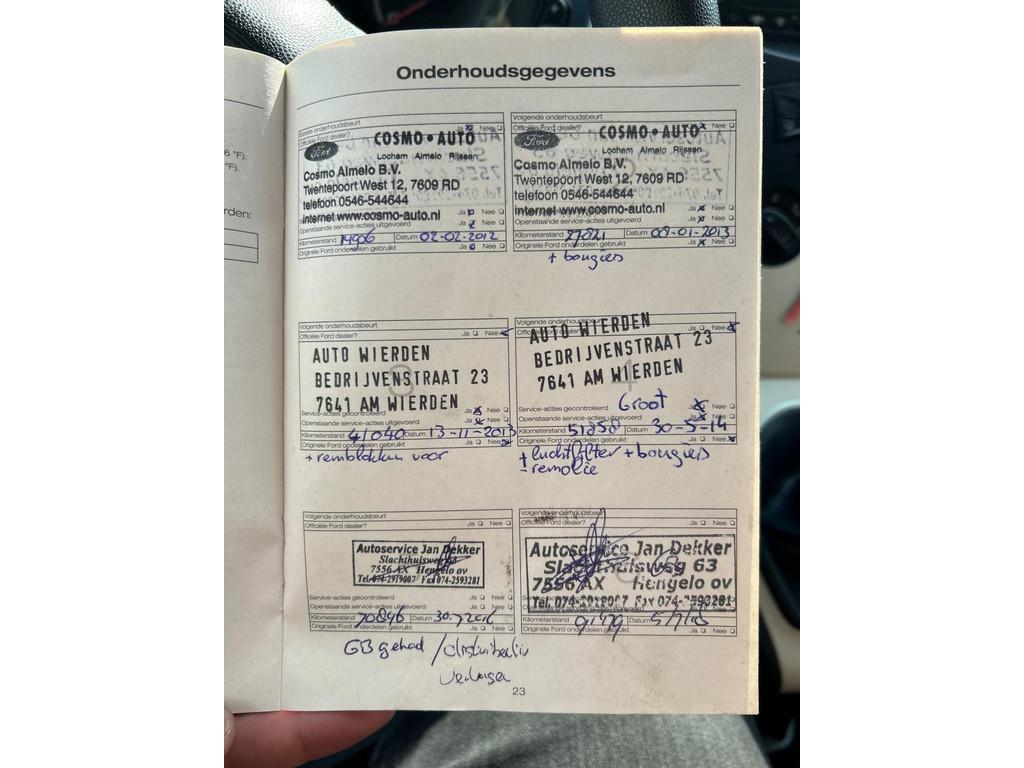 6 °F).
°F).
rden:
Onderhoudsgegevens
Eerste onderhoudsbeurt
Officiële Ford dealer? Ja Nee
Ford COSMO • AUTO
Lochem Almelo Rijssen
Cosmo Almelo B.V.
Twentepoort West 12, 7609 RD
telefoon 0546-544644
internet www.cosmo-auto.nl Ja Nee
Openstaande service-acties uitgevoerd Ja Nee
Kilometerstand 14906 Datum 02-02-2012
Originele Ford onderdelen gebruikt Ja Nee
Volgende onderhoudsbeurt
Officiële Ford dealer? Ja Nee
Ford COSMO • AUTO
Lochem Almelo Rijssen
Cosmo Almelo B.V.
Twentepoort West 12, 7609 RD
telefoon 0546-544644
internet www.cosmo-auto.nl Ja Nee
Openstaande service-acties uitgevoerd Ja Nee
Kilometerstand 27821 Datum 08-01-2013
Originele Ford onderdelen gebruikt Ja Nee
+ bougies
Volgende onderhoudsbeurt
Officiële Ford dealer? Ja Nee
AUTO WIERDEN
BEDRIJVENSTRAAT 23
7641 AM WIERDEN
Service-acties gecontroleerd Ja Nee
Openstaande service-acties uitgevoerd Ja Nee
Kilometerstand 41040 Datum 13-11-2013
Originele Ford onderdelen gebruikt Ja Nee
+ remblokken voor
Volgende onderhoudsbeurt
Officiële Ford dealer? Ja Nee
AUTO WIERDEN
BEDRIJVENSTRAAT 23
7641 AM WIERDEN
4
Groot
Service-acties gecontroleerd Ja Nee
Openstaande service-acties uitgevoerd Ja Nee
Kilometerstand 51858 Datum 30-5-14
Originele Ford onderdelen gebruikt Ja Nee
+ luchtfilter + bougies
- remolie
Volgende onderhoudsbeurt
Officiële Ford dealer? Ja Nee
Autoservice Jan Dekker
Slachthuisweg 63
7556 AX Hengelo ov
Tel. 074-2919007 Fax 074-2593281
Service-acties gecontroleerd Ja Nee
Openstaande service-acties uitgevoerd Ja Nee
Kilometerstand 70896 Datum
Originele Ford onderdelen gebruikt Ja Nee
GB gehad / distributie
Volgende onderhoudsbeurt
Officiële Ford dealer? Ja Nee
Autoservice Jan Dekker
Slachthuisweg 63
7556 AX Hengelo ov
Tel. 074-2919007 Fax 074-2593281
Openstaande service-acties uitgevoerd Ja Nee
Kilometerstand Datum
Originele Ford onderdelen gebruikt Ja Nee
23